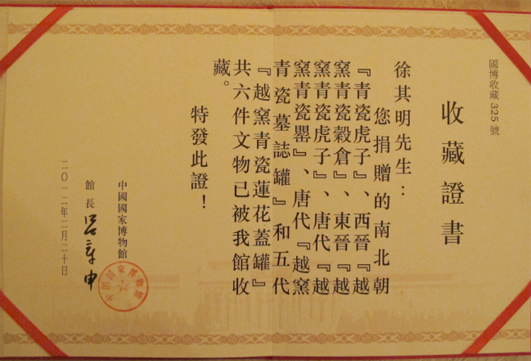 國博收藏325號
收藏證書
徐其明先生：
您捐贈的南北朝
『青瓷虎子』、西晉『越
窯青瓷穀倉』、東晉『越
窯青瓷虎子』、唐代『越
窯青瓷罌』、唐代『越窯
青瓷墓誌罐』和五代
『越窯青瓷蓮花蓋罐』
共六件文物已被我館收
藏。
特發此證！
中國國家博物館
館長 呂章申
二〇一二年二月二十日